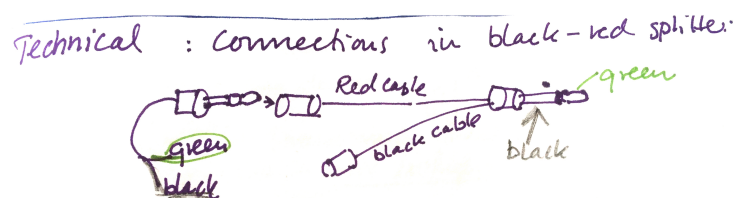 Technical : Connections in black-red splitter.
Red cable
green
black cable
black
green
black